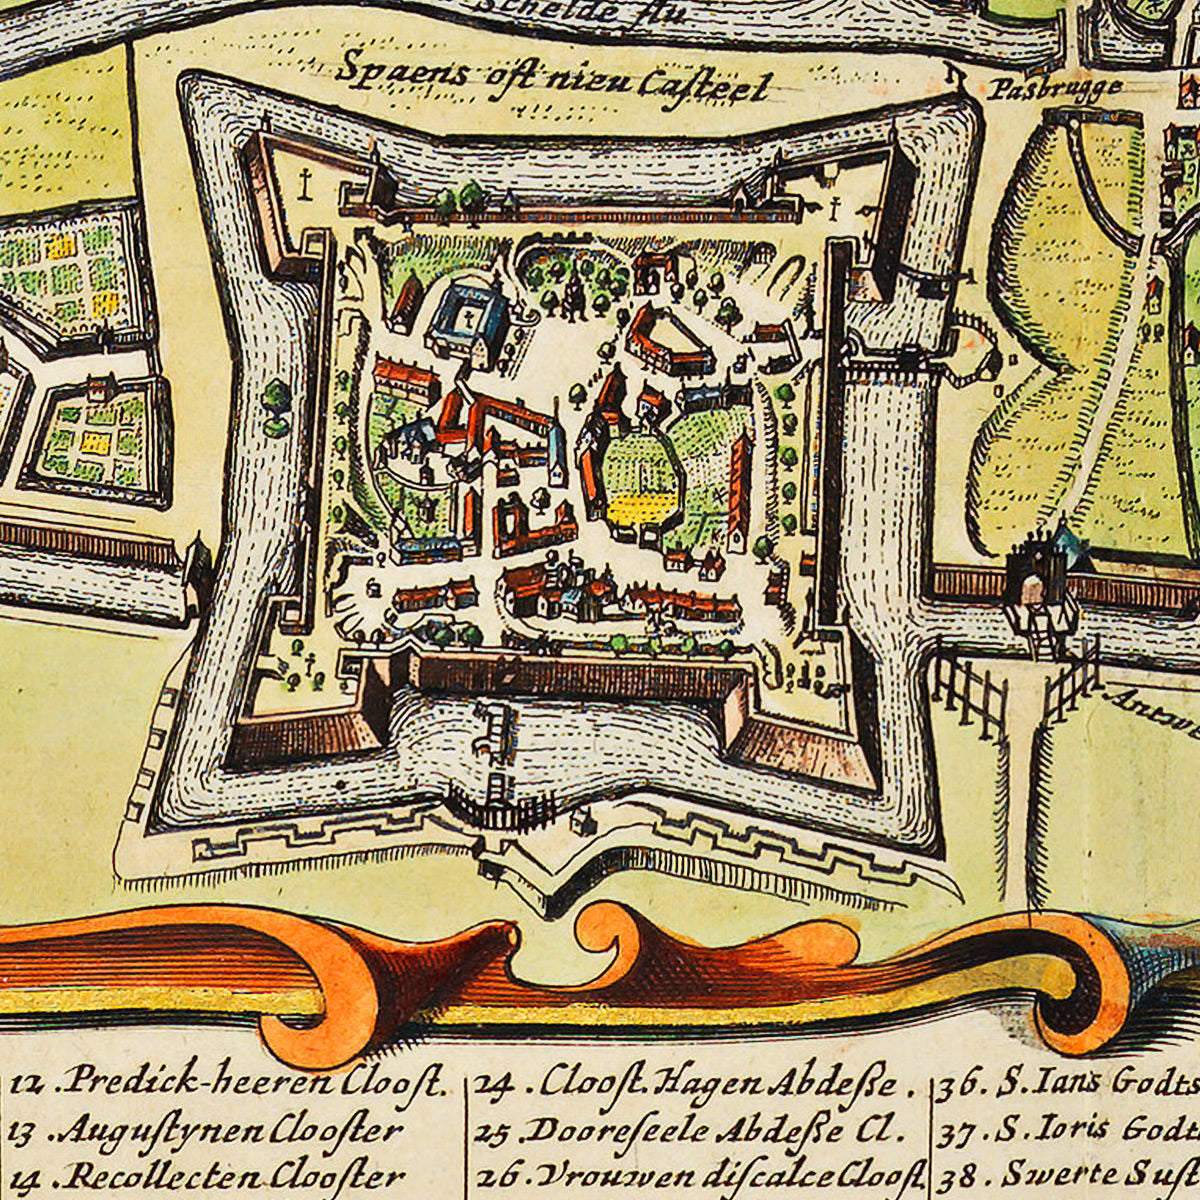 Schelde flu
Spaens oft nieu Casteel
Pasbrugge
Antw
12. Predick-heeren Cloost.
13. Augustynen Clooster
14. Recollecten Clooster
24. Cloost. Hagen Abdeße.
25. Dooreseele Abdeße Cl.
26. Vrouwen discalce Cloost.
36. S. Ians Godts
37. S. Ioris Godt
38. Swerte Sust